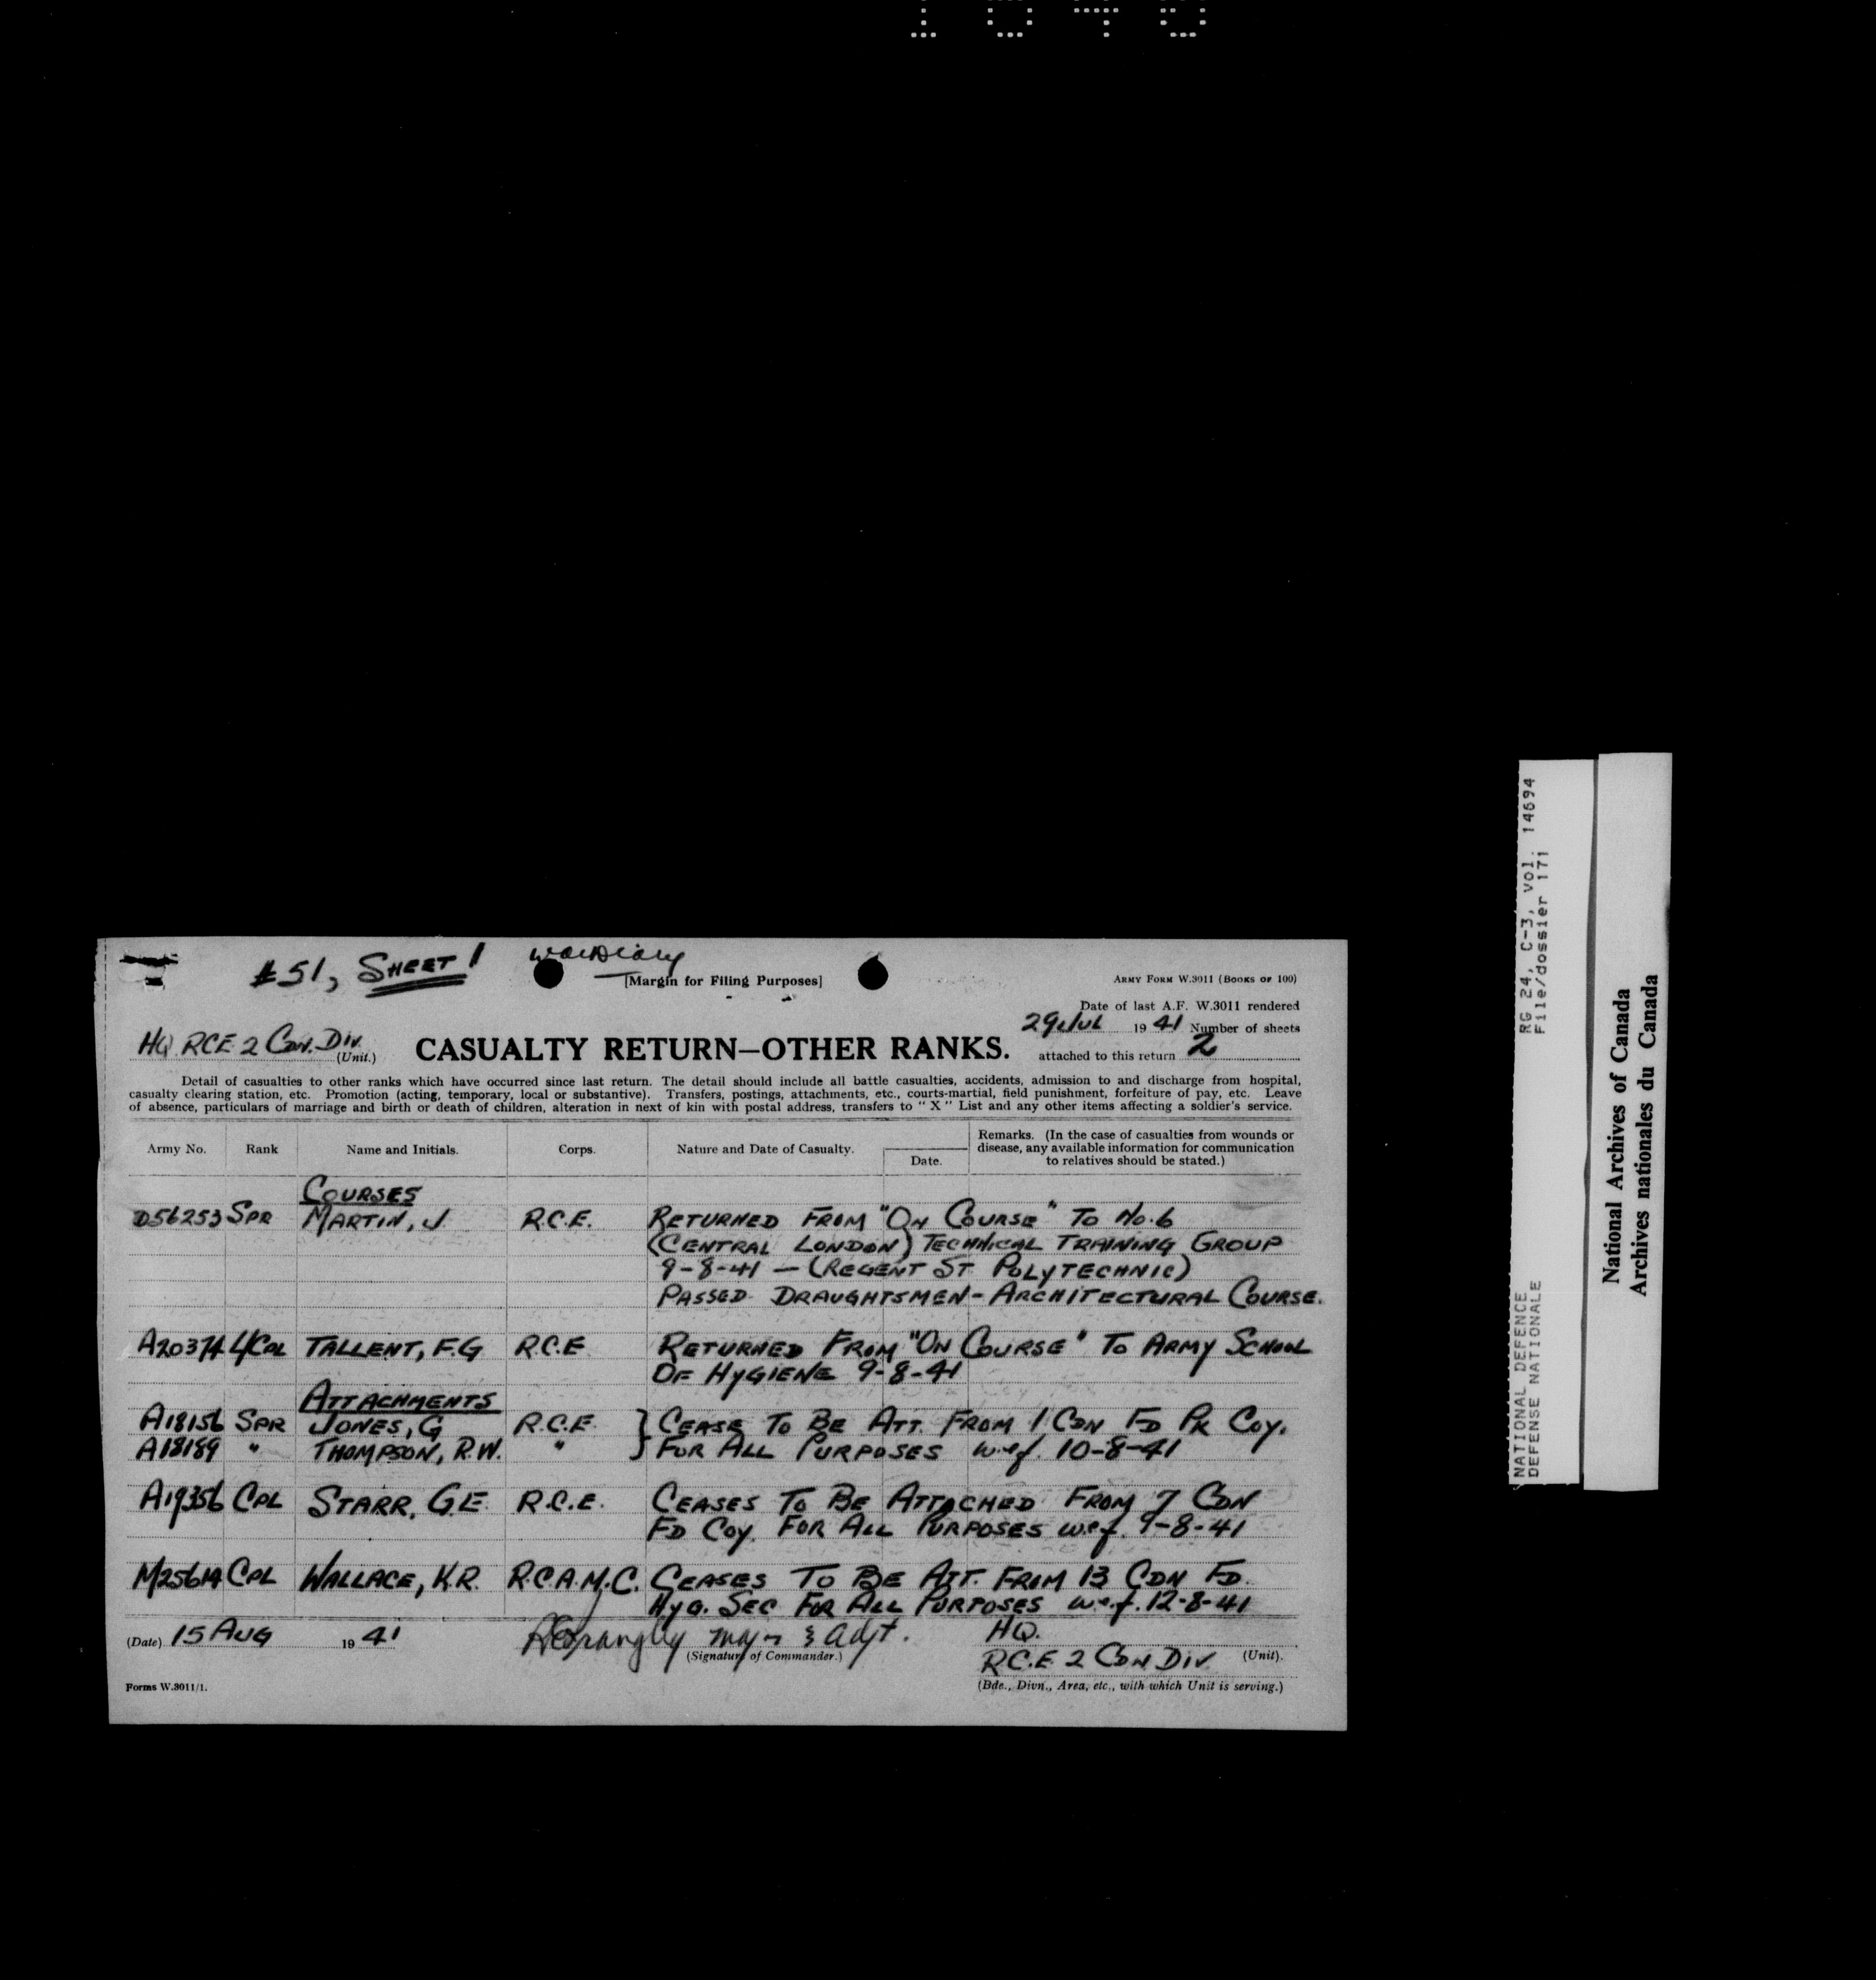 1040
#51, SHEET 1 War Diary
[Margin for Filing Purposes]
ARMY FORM W.3011 (BOOKS OF 100)
Date of last A.F. W.3011 rendered
29 JUL 1941 Number of sheets
attached to this return 2
HQ RCE 2 CDN. DIV.
(Unit.)
CASUALTY RETURN—OTHER RANKS.
Detail of casualties to other ranks which have occurred since last return. The detail should include all battle casualties, accidents, admission to and discharge from hospital,
casualty clearing station, etc. Promotion (acting, temporary, local or substantive). Transfers, postings, attachments, etc., courts-martial, field punishment, forfeiture of pay, etc. Leave
of absence, particulars of marriage and birth or death of children, alteration in next of kin with postal address, transfers to " X " List and any other items affecting a soldier's service.
Army No. Rank Name and Initials. Corps. Nature and Date of Casualty. Date. Remarks. (In the case of casualties from wounds or
disease, any available information for communication
to relatives should be stated.)
COURSES
D56253 SPR MARTIN, J R.C.E. RETURNED FROM "ON COURSE" TO No. 6
(CENTRAL LONDON) TECHNICAL TRAINING GROUP
9-8-41 — (REGENT ST. POLYTECHNIC)
PASSED DRAUGHTSMEN-ARCHITECTURAL COURSE.
A20374 L/CPL TALLENT, F.G R.C.E RETURNED FROM "ON COURSE" TO ARMY SCHOOL
OF HYGIENE 9-8-41
ATTACHMENTS
A18156 SPR JONES, G R.C.E. } CEASE TO BE ATT. FROM 1 CDN FD PK COY.
A18189 " THOMPSON, R.W. " } FOR ALL PURPOSES w.e.f. 10-8-41
A19356 CPL STARR, G.E. R.C.E. CEASES TO BE ATTACHED FROM 7 CDN
FD COY. FOR ALL PURPOSES w.e.f. 9-8-41
M25614 CPL WALLACE, K.R. R.C.A.M.C. CEASES TO BE ATT. FROM 13 CDN FD.
HYG. SEC FOR ALL PURPOSES w.e.f. 12-8-41
(Date) 15 AUG 1941 Maj & Adjt.
(Signature of Commander.)
HQ.
R.C.E. 2 CDN DIV (Unit).
(Bde., Divn., Area, etc., with which Unit is serving.)
Forms W.3011/1.
RG 24, C-3, Vol. 14694
File/dossier 171
NATIONAL DEFENCE
DEFENSE NATIONALE
National Archives of Canada
Archives nationales du Canada